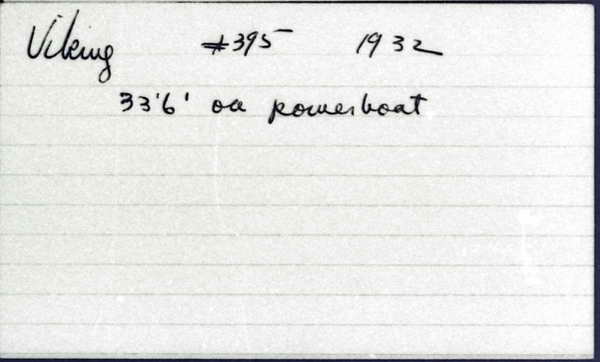 Viking #395 1932
33'6' oa powerboat